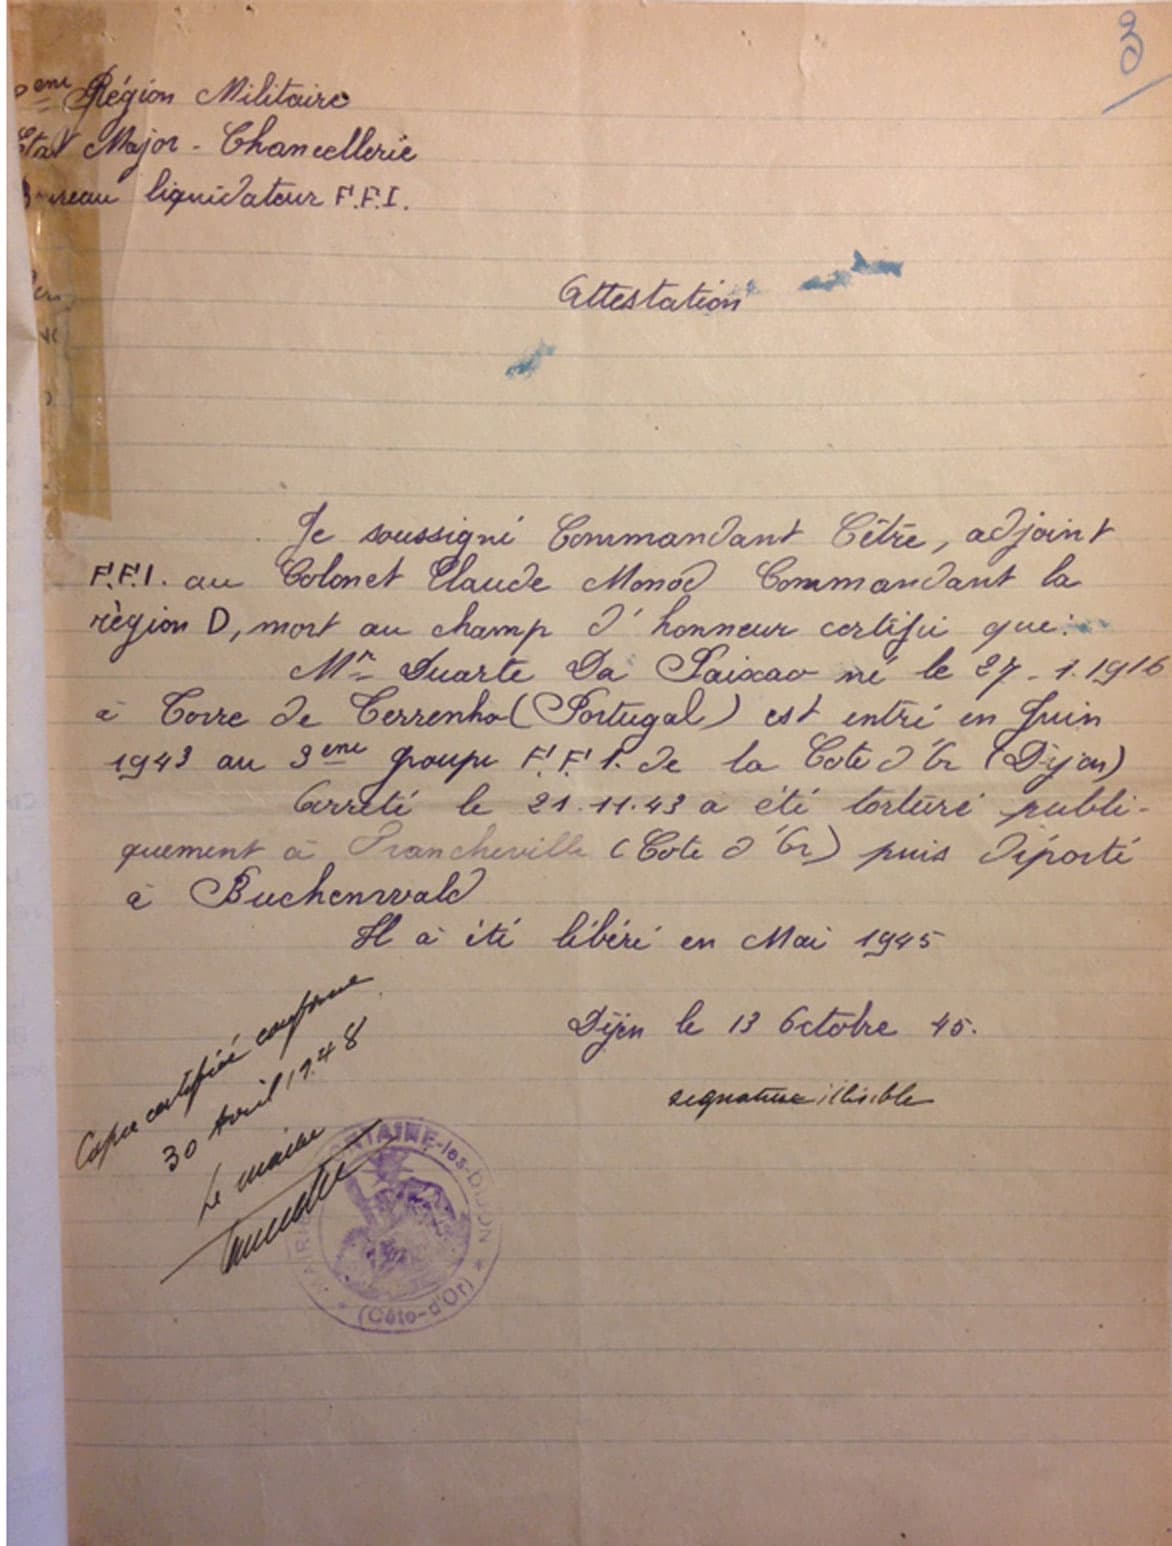 eme Région Militaire
Etat Major - Chancellerie
Bureau liquidateur F.F.I.
Attestation
Je soussigné Commandant Cêtre, adjoint
F.F.I. au Colonel Claude Monod Commandant la
règion D, mort au champ d'honneur certifié que:
Mr Duarte Da Paixao né le 27-1.1916
à Torre de Terrenho (Portugal) est entré en Juin
1943 au 3eme groupe F.F.I. de la Cote d'Or (Dijon)
Arrêté le 21.11.43 a été torturé publi-
quement à Francheville (Cote d'Or) puis déporté
à Buchenwald
Il à été libéré en Mai 1945
Dijon le 13 Octobre 45.
signature illisible
Copie certifiée conforme
30 Avril 1948
Le maire
MAIRIE FONTAINE-les-DIJON
(Côte-d'Or)